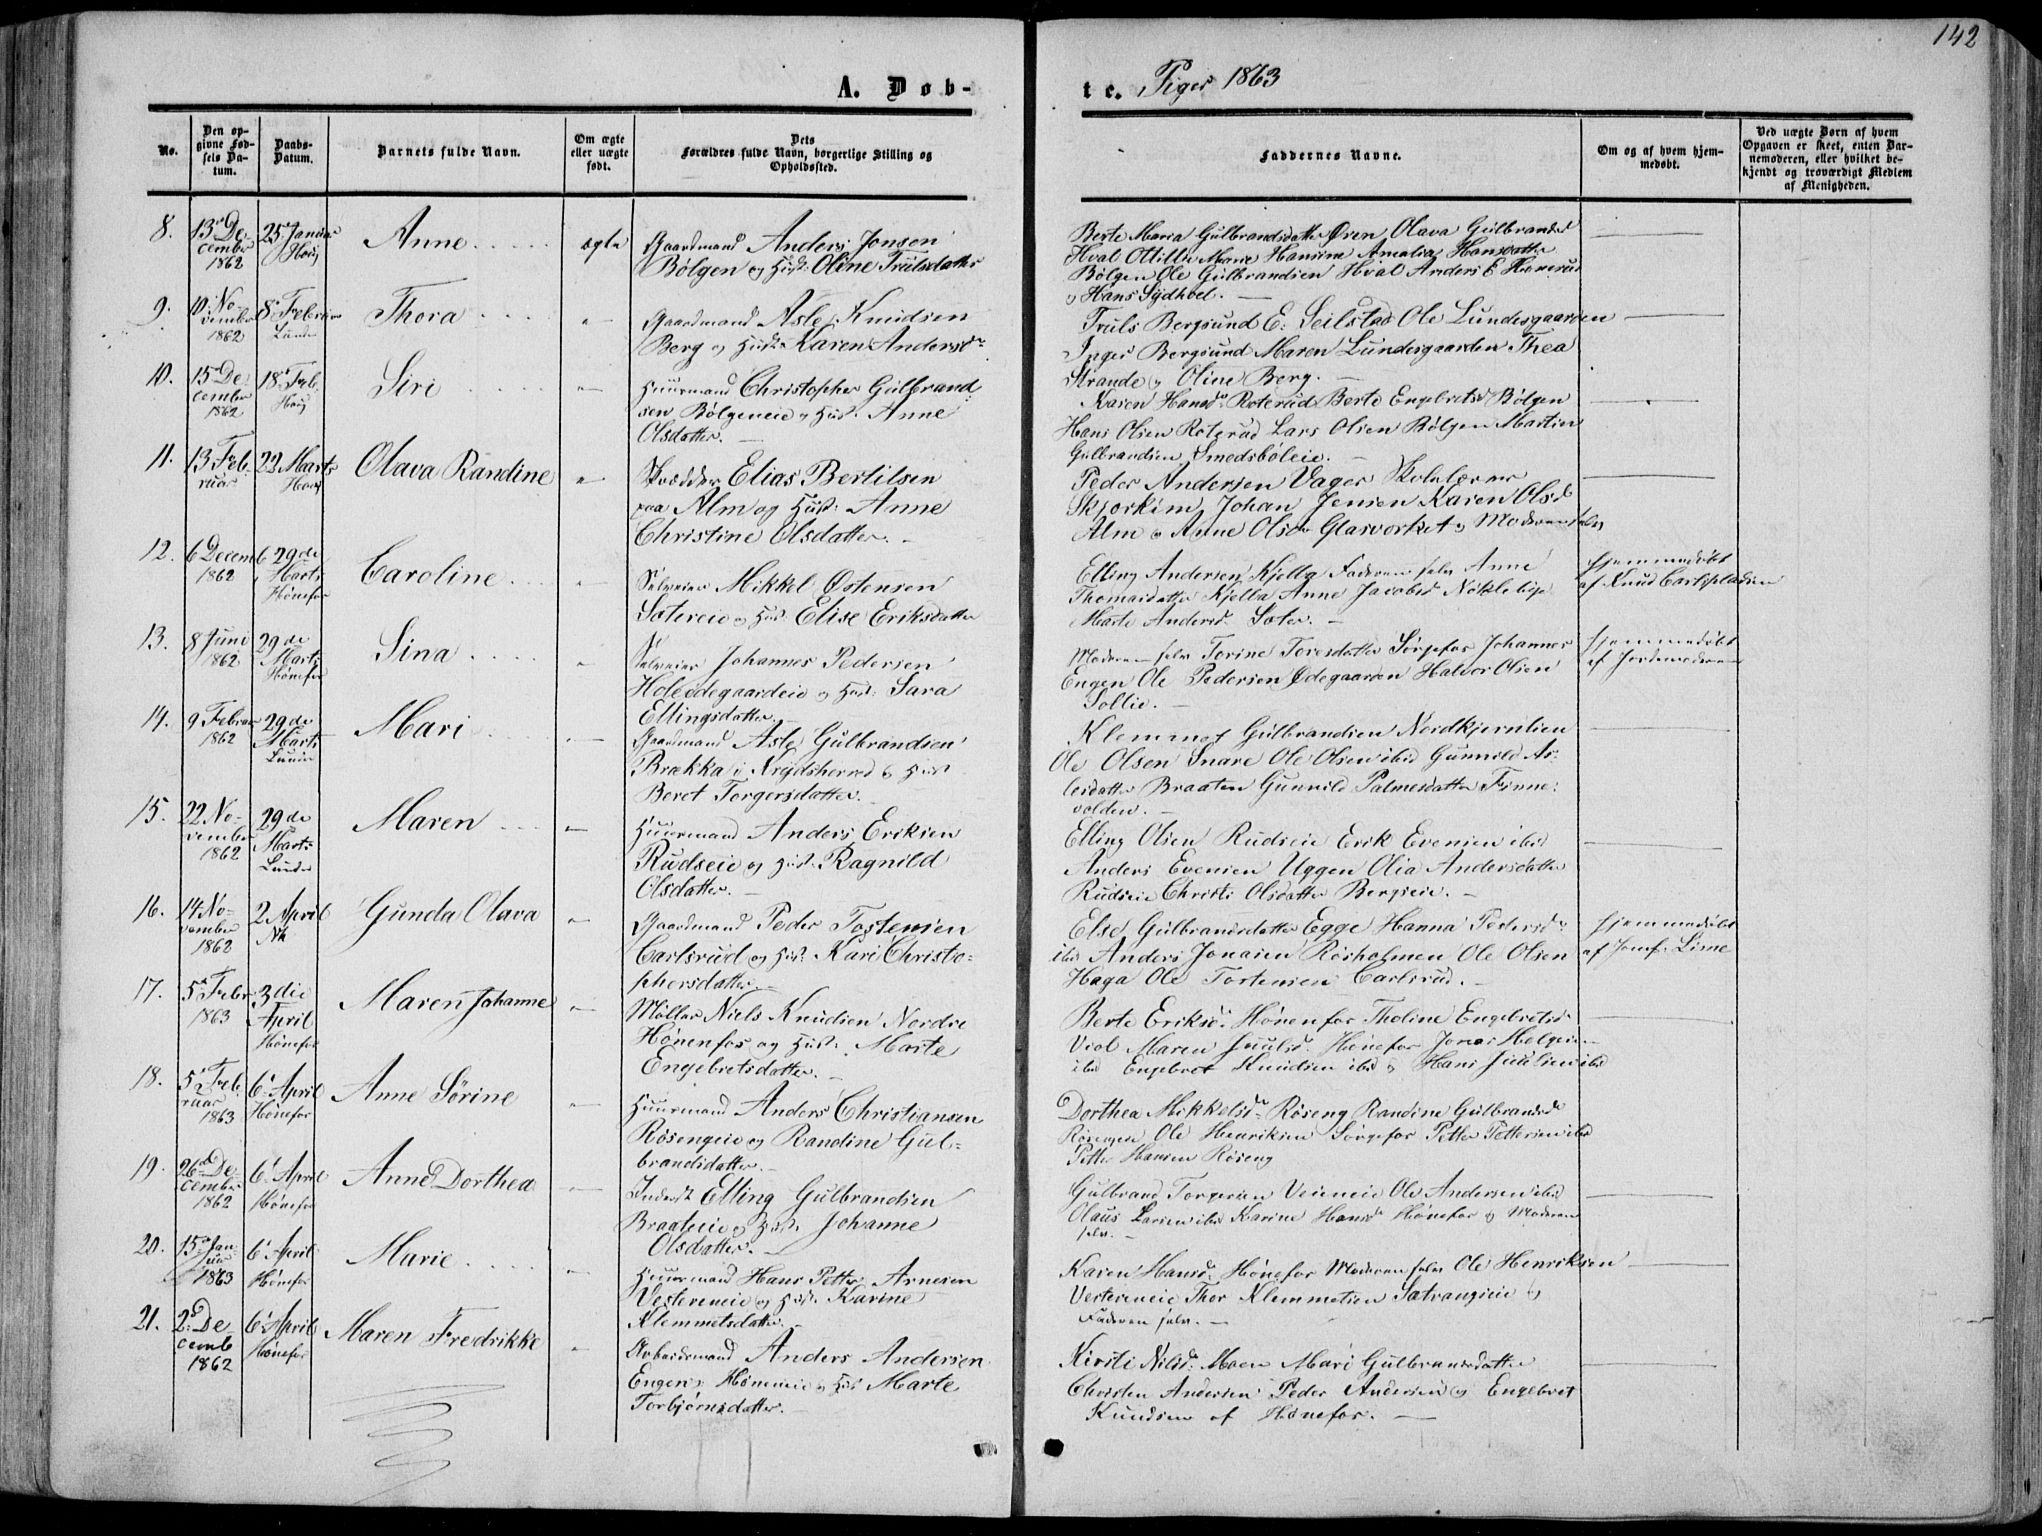 142
A. Døb-
te. Piger 1863
No.
Den op-
givne Fød-
sels Da-
tum.
Daabs-
Datum.
Barnets fulde Navn.
Om ægte
eller uægte
født.
Dets
Forældres fulde Navn, borgerlige Stilling og
Opholdssted.
Faddernes Navne.
Om og af hvem hjem-
medøbt.
Ved uægte Børn af hvem
Opgaven er skeet, enten Bar-
nemoderen, eller hvilket be-
kjendt og troværdigt Medlem
af Menigheden.
8.
13 De-
cember
1862
25 Januar
Houg
Anne
ægte
Gaardmand Anders Jonsen
Bølgen og Hust: Oline Trulsdatter
Berte Maria Gulbrandsdatter Øren Olava Gulbrandsd
Hval Ottilie Marie Hansine Amalia Hansdatter
Bølgen Ole Gulbrandsen Hval Anders E
og Hans Sydhoel.
9.
10 No-
vember
1862
8 Februar
Lunder
Thora
"
Gaardmand Asle Knudsen
Berg og Hust: Karen Andersd
Truls Bergsund E: Seilstad Ole Lundesgaarden
Inger Bergsund Maren Lundesgaarden Thea
Strande og Oline Berg.
10.
15 De-
cember
1862
18 Feb.
Houg
Siri
"
Huusmand Christopher Gulbrand-
sen Bølgeneie og Hust: Anne
Olsdatter.
Karen Hansd: Roterud Berte Engebretsd Bølgen
Hans Olsen Roterud Lars Olsen Bølgen Martin
Gulbrandsen Smedsbøleie.
11.
13 Feb.
ruar
22 Marts
Houg
Olava Randine
"
Skrædder Elias Bertilsen
paa Alm og Hust: Anne
Christine Olsdatter.
Peder Andersen Vager Skolelærer
Johan Jensen Karen Olsd
Alm og Anne Olsd Glasværket og Moderen selv
12.
6 Decem
1862
29de
Marts
Hønefos
Caroline
"
Selveier Mikkel Østensen
Sotereie og Hust: Elise Eriksdatter
Elling Andersen Kjella Faderen selv Anne
Thomasdatter Kjella Anne Jacobsd Nøklebye
Marte Andersd Soter.
Hjemmedøbt
af Knud Carlspladsen
13.
8 Juni
1862
29de
Marts
Hønefos
Sina
"
Selveier Johannes Pedersen
Hole Ødegaardeie og Hust: Sara
Ellingsdatter.
Moderen selv Torine Toresdatter Sørgefos Johannes
Engen Ole Pedersen Ødegaarden Halvor Olsen
Sollie.
Hjemmedøbt
af Jordemoderen
14.
9 Februar
1862
29de
Marts
Lunder
Mari
"
Gaardmand Asle Gulbrandsen
Brækka i Hust
Beret Torgersdatter.
Klemmet Gulbrandsen Nordkjernlien
Ole Olsen Snare Ole Olsen ibid Gunnild As-
lesdatter Braaten Gunnild Palmesdatter Finne-
volden.
15.
22 No-
vember
1862
29de
Marts
Lunder
Maren
"
Huusmand Anders Eriksen
Rudseie og Hust: Ragnild
Olsdatter.
Elling Olsen Rudseie Erik Evensen ibid
Anders Evensen Uggen Olia Andersdatter
Rudseie Christi Olsdatter Bergseie.
16.
14 No-
vember
1862
2 April
Nk
Gunda Olava
"
Gaardmand Peder Tostensen
Carlsrud og Hust: Kari Christo-
phersdatter.
Else Gulbrandsdatter Egge Hanna Pedersd
ibid Anders Jonasen Rosholmen Ole Olsen
Haga Ole Tostensen Carlsrud.
Hjemmedøbt
af Jomf. Lime
17.
5 Febr.
1863
3die
April
Hønefos
Maren Johanne
"
Møller Niels Knudsen Nordre
Hønenfos og Hust: Marte
Engebretsdatter.
Berte Eriksd: Hønenfos Tholine Engebretsd
Viol Maren Juulsd: Hønefos Jonas Helgesen
ibid Engebret Knudsen ibid og Hans Juulsen ibid
18.
5 Feb.
ruar
1863
6 April
Hønefos
Anne Sørine
"
Huusmand Anders Christiansen
Røsengeie og Randine Gul-
brandsdatter.
Dorthea Mikkelsd: Røseng Randine Gulbrandsd
Røsengen Ole Henriksen Sørgefos Petter Pettersen ibid
Petter Hansen Røseng
19.
26 De-
cember
1862
6 April
Hønefos
Anne Dorthea
"
Inderst Elling Gulbrandsen
Braateie og Hust: Johanne
Olsdatter.
Gulbrand Torgersen Veieneie Ole Andersen ibid
Olaus Larsen ibid Karine Hansd Hønefos og Moderen
selv.
20.
15 Jan-
uar
1863
6 April
Hønefos
Marie
"
Huusmand Hans Petter Arnesen
Vestereneie og Hust: Karine
Klemmetsdatter.
Karen Hansd: Hønefos Moderen selv Ole Henriksen
Vestereneie Thor Klemmetsen Satrangseie og
Faderen selv.
21.
2 De-
cemb
1862
6 April
Hønefos
Maren Fredrikke
"
Arbeidsmand Anders Andersen
Engen Høneneie og Hust Marte
Torbjørnsdatter.
Kirsti Nilsd: Moen Mari Gulbrandsdatter
Christen Andersen Peder Andersen og Engebret
Knudsen af Hønefos.